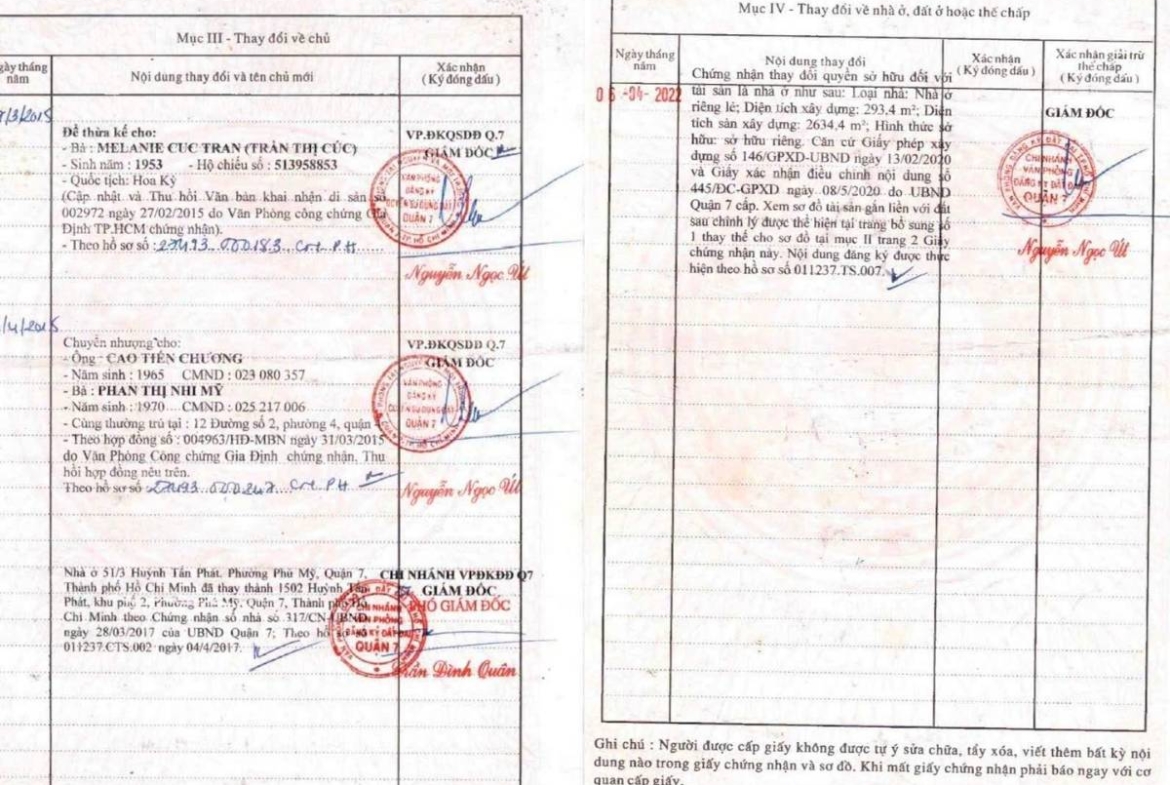 Mục III - Thay đổi về chủ
gày tháng
năm
Nội dung thay đổi và tên chủ mới
Xác nhận
( Ký đóng dấu )
/3/2015
Để thừa kế cho:
- Bà : MELANIE CUC TRAN (TRẦN THỊ CÚC)
- Sinh năm : 1953 - Hộ chiếu số : 513958853
- Quốc tịch: Hoa Kỳ
(Cập nhật và Thu hồi Văn bản khai nhận di sản số
002972 ngày 27/02/2015 do Văn Phòng công chứng Gia
Định TP.HCM chứng nhận).
- Theo hồ sơ số :
VP.ĐKQSDĐ Q.7
GIÁM ĐỐC
VĂN PHÒNG
ĐĂNG KÝ
QUYỀN SỬ DỤNG ĐẤT
QUẬN 7
Nguyễn Ngọc Út
/4/2015
Chuyển nhượng cho:
- Ông - CAO TIẾN CHƯƠNG
- Năm sinh : 1965 CMND : 023 080 357
- Bà : PHAN THỊ NHI MỸ
- Năm sinh : 1970 CMND : 025 217 006
- Cùng thường trú tại : 12 Đường số 2, phường 4, quận
- Theo hợp đồng số : 004963/HĐ-MBN ngày 31/03/2015
do Văn Phòng Công chứng Gia Định chứng nhận. Thu
hồi hợp đồng nêu trên.
Theo hồ sơ số
VP.ĐKQSDĐ Q.7
GIÁM ĐỐC
VĂN PHÒNG
ĐĂNG KÝ
QUYỀN SỬ DỤNG ĐẤT
QUẬN 7
Nguyễn Ngọc Út
Nhà ở 51/3 Huỳnh Tấn Phát, Phường Phú Mỹ, Quận 7,
Thành phố Hồ Chí Minh đã thay thành 1502 Huỳnh Tấn
Phát, khu phố 2, Phường Phú Mỹ, Quận 7, Thành phố Hồ
Chí Minh theo Chứng nhận số nhà số 317/CN-UBND
ngày 28/03/2017 của UBND Quận 7; Theo hồ
011237.CTS.002 ngày 04/4/2017.
CHI NHÁNH VPĐKĐĐ Q7
GIÁM ĐỐC
PHÓ GIÁM ĐỐC
CHI NHÁNH
VĂN PHÒNG
ĐĂNG KÝ ĐẤT ĐAI
QUẬN 7
Trần Đình Quân
Mục IV - Thay đổi về nhà ở, đất ở hoặc thế chấp
Ngày tháng
năm
Nội dung thay đổi
Xác nhận
( Ký đóng dấu )
Xác nhận giải trừ
thế chấp
( Ký đóng dấu )
06 -04- 2022
Chứng nhận thay đổi quyền sở hữu đối với
tài sản là nhà ở như sau: Loại nhà: Nhà ở
riêng lẻ; Diện tích xây dựng: 293,4 m²; Diện
tích sàn xây dựng: 2634,4 m²; Hình thức sở
hữu: sở hữu riêng. Căn cứ Giấy phép xây
dựng số 146/GPXD-UBND ngày 13/02/2020
và Giấy xác nhận điều chỉnh nội dung số
445/ĐC-GPXD ngày 08/5/2020 do UBND
Quận 7 cấp. Xem sơ đồ tài sản gắn liền với đất
sau chỉnh lý được thể hiện tại trang bổ sung số
1 thay thế cho sơ đồ tại mục II trang 2 Giấy
chứng nhận này. Nội dung đăng ký được thực
hiện theo hồ sơ số 011237.TS.007.
GIÁM ĐỐC
CHI NHÁNH
VĂN PHÒNG
ĐĂNG KÝ ĐẤT ĐAI
QUẬN 7
Nguyễn Ngọc Út
Ghi chú : Người được cấp giấy không được tự ý sửa chữa, tẩy xóa, viết thêm bất kỳ nội
dung nào trong giấy chứng nhận và sơ đồ. Khi mất giấy chứng nhận phải báo ngay với cơ
quan cấp giấy.